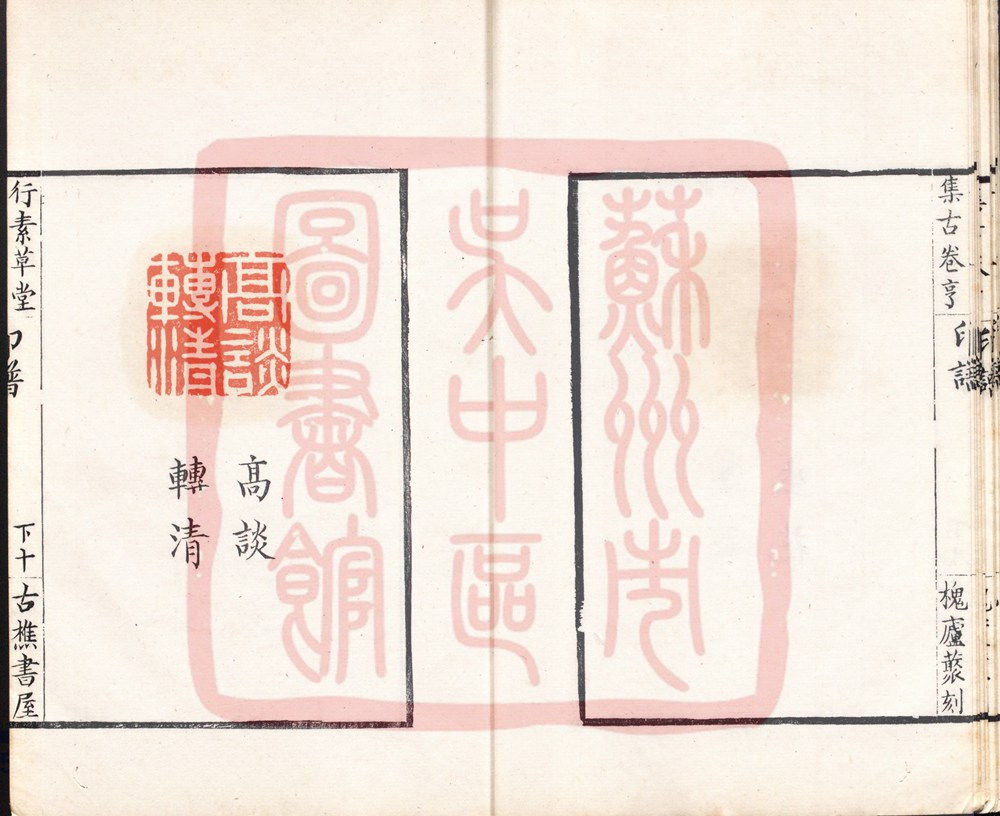 集古卷亨
印譜
槐廬叢刻
蘇州市
吳中區
圖書館
高談
轉清
高談
轉清
行素草堂
印譜
下十
古樵書屋